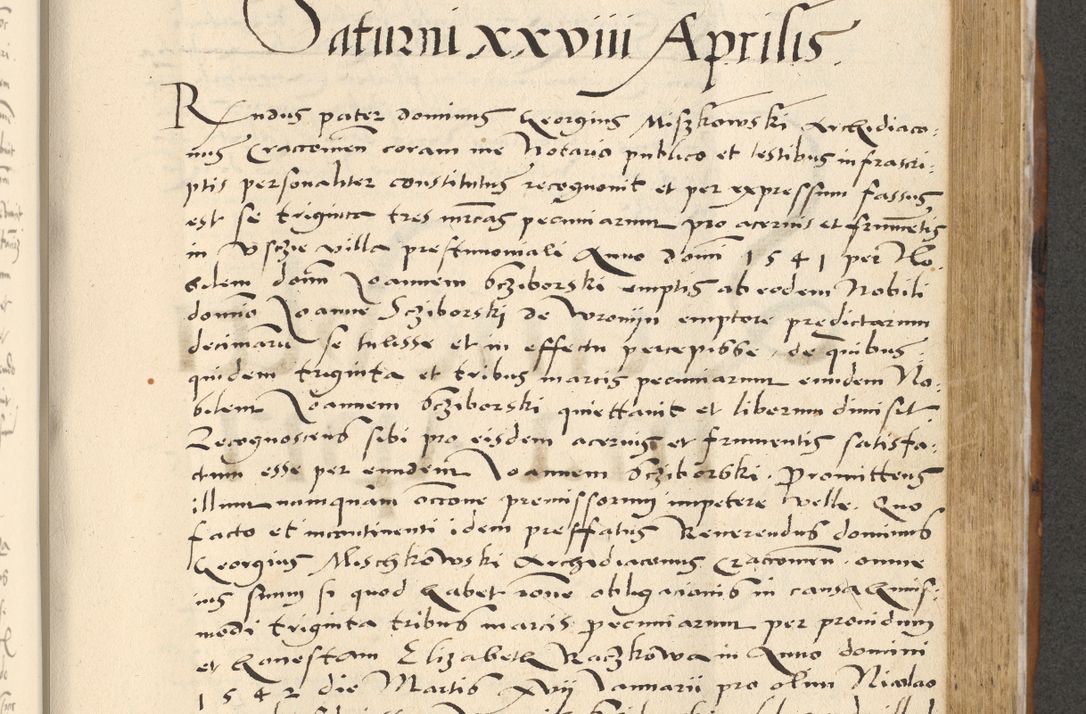 Saturni xxviii Aprilis.
Rndus pater dominus Georgius Miszkowski Archidiaco:
nus Cracovien coram me Notario publico et testibus infrascri:
ptis personaliter constitutus recognovit et per expressum fassus
est se triginta tres mrcas pecuniarum pro acervis et frumentis
in Usczie villa prestimoniali Anno domi 1541 per No:
bilem dom Joannem Scziborski emptis ab eodem Nobili
domino Joanne Scziborskj de Wronyn emptore predictarum
decimaru se tulisse et in effectu percepisse, de quibus
quidem triginta et tribus marcis pecuniarum eundem No:
bilem Joannem Scziborski quiettavit et liberum dimisit
Recognoscens sibi pro eisdem acervis et frumentis satisfa:
ctum esse per eundem Joannem Scziborski. Promittens
illum nunquam occone premissorum impetere velle. Quo
facto et incontinenti idem preffatus Reverendus dominus
Georgius Mischkowski Archidiaconus Cracovien. omne
ius suum si quod habet rone obligacionis in causa huius:
modi triginta tribus marcis pecuniarum per providum
et honestam Elizabeth Raczkowa in Anno domini
1542 die Martis xvij Januarii pro olim Nicolao